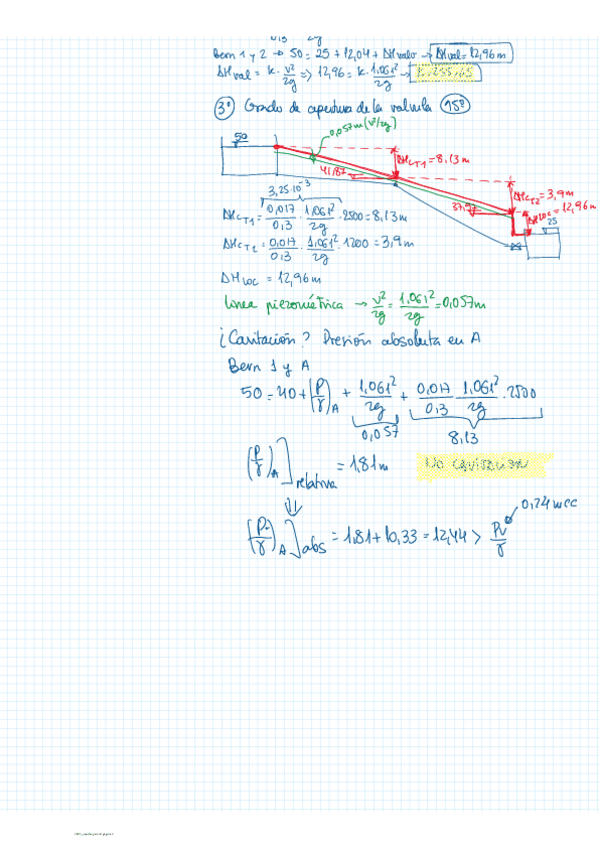 0,3 2g
Bern 1 y 2 → 50 = 25 + 12,04 + ΔHvalv → ΔHval = 12,96 m
ΔHval = k · v²/2g => 12,96 = k · 1,061²/2g →
3º Grado de apertura de la valvula 15º
0,057 m (v²/2g)
50
ΔHCT1 = 8,13 m
41,87
ΔHCT2 = 3,9 m
37,97
ΔHLOC = 12,96 m
25
3,25·10⁻³
ΔHCT1 = 0,017/0,3 · 1,061²/2g · 2500 = 8,13 m
ΔHCT2 = 0,017/0,3 · 1,061²/2g · 1200 = 3,9 m
ΔHLOC = 12,96 m
Linea piezométrica → v²/2g = 1,061²/2g = 0,057 m
¿Cavitación? Presión absoluta en A
Bern 1 y A
50 = 40 + (P/γ)A + 1,061²/2g + 0,017/0,3 · 1,061²/2g · 2500
0,057 8,13
(P/γ)A]relativa = 1,81 m NO CAVITACION
⇓
0,24 mcc
(P/γ)A]abs = 1,81 + 10,33 = 12,44 > Pv/γ